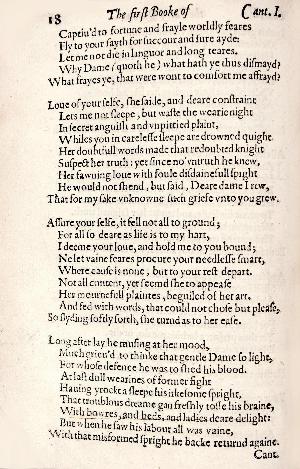 18 The first Booke of Cant. I.
Captiu'd to fortune and frayle worldly feares
Fly to your fayth for succour and sure ayde:
Let me not die in languor and long teares.
Why Dame (quoth he) what hath ye thus dismayd?
What frayes ye, that were wont to comfort me affrayd?
Loue of your selfe, she saide, and deare constraint
Lets me not sleepe, but waste the wearie night
In secret anguish and vnpittied plaint,
Whiles you in carelesse sleepe are drowned quight.
Her doubtfull words made that redoubted knight
Suspect her truth: yet since no'vntruth he knew,
Her fawning loue with foule disdainefull spight
He would not shend, but said, Deare dame I rew,
That for my sake vnknowne such griefe vnto you grew.
Assure your selfe, it fell not all to ground;
For all so deare as life is to my hart,
I deeme your loue, and hold me to you bound;
Ne let vaine feares procure your needlesse smart,
Where cause is none, but to your rest depart.
Not all content, yet seemd she to appease
Her mournefull plaintes, beguiled of her art,
And fed with words, that could not chose but please,
So slyding softly forth, she turnd as to her ease.
Long after lay he musing at her mood,
Much grieu'd to thinke that gentle Dame so light,
For whose defence he was to shed his blood.
At last dull wearines of former fight
Hauing yrockt a sleepe his irkesome spright,
That troublous dreame gan freshly tosse his braine,
With bowres, and beds, and ladies deare delight:
But when he saw his labour all was vaine,
With that misformed spright he backe returnd againe.
Cant.